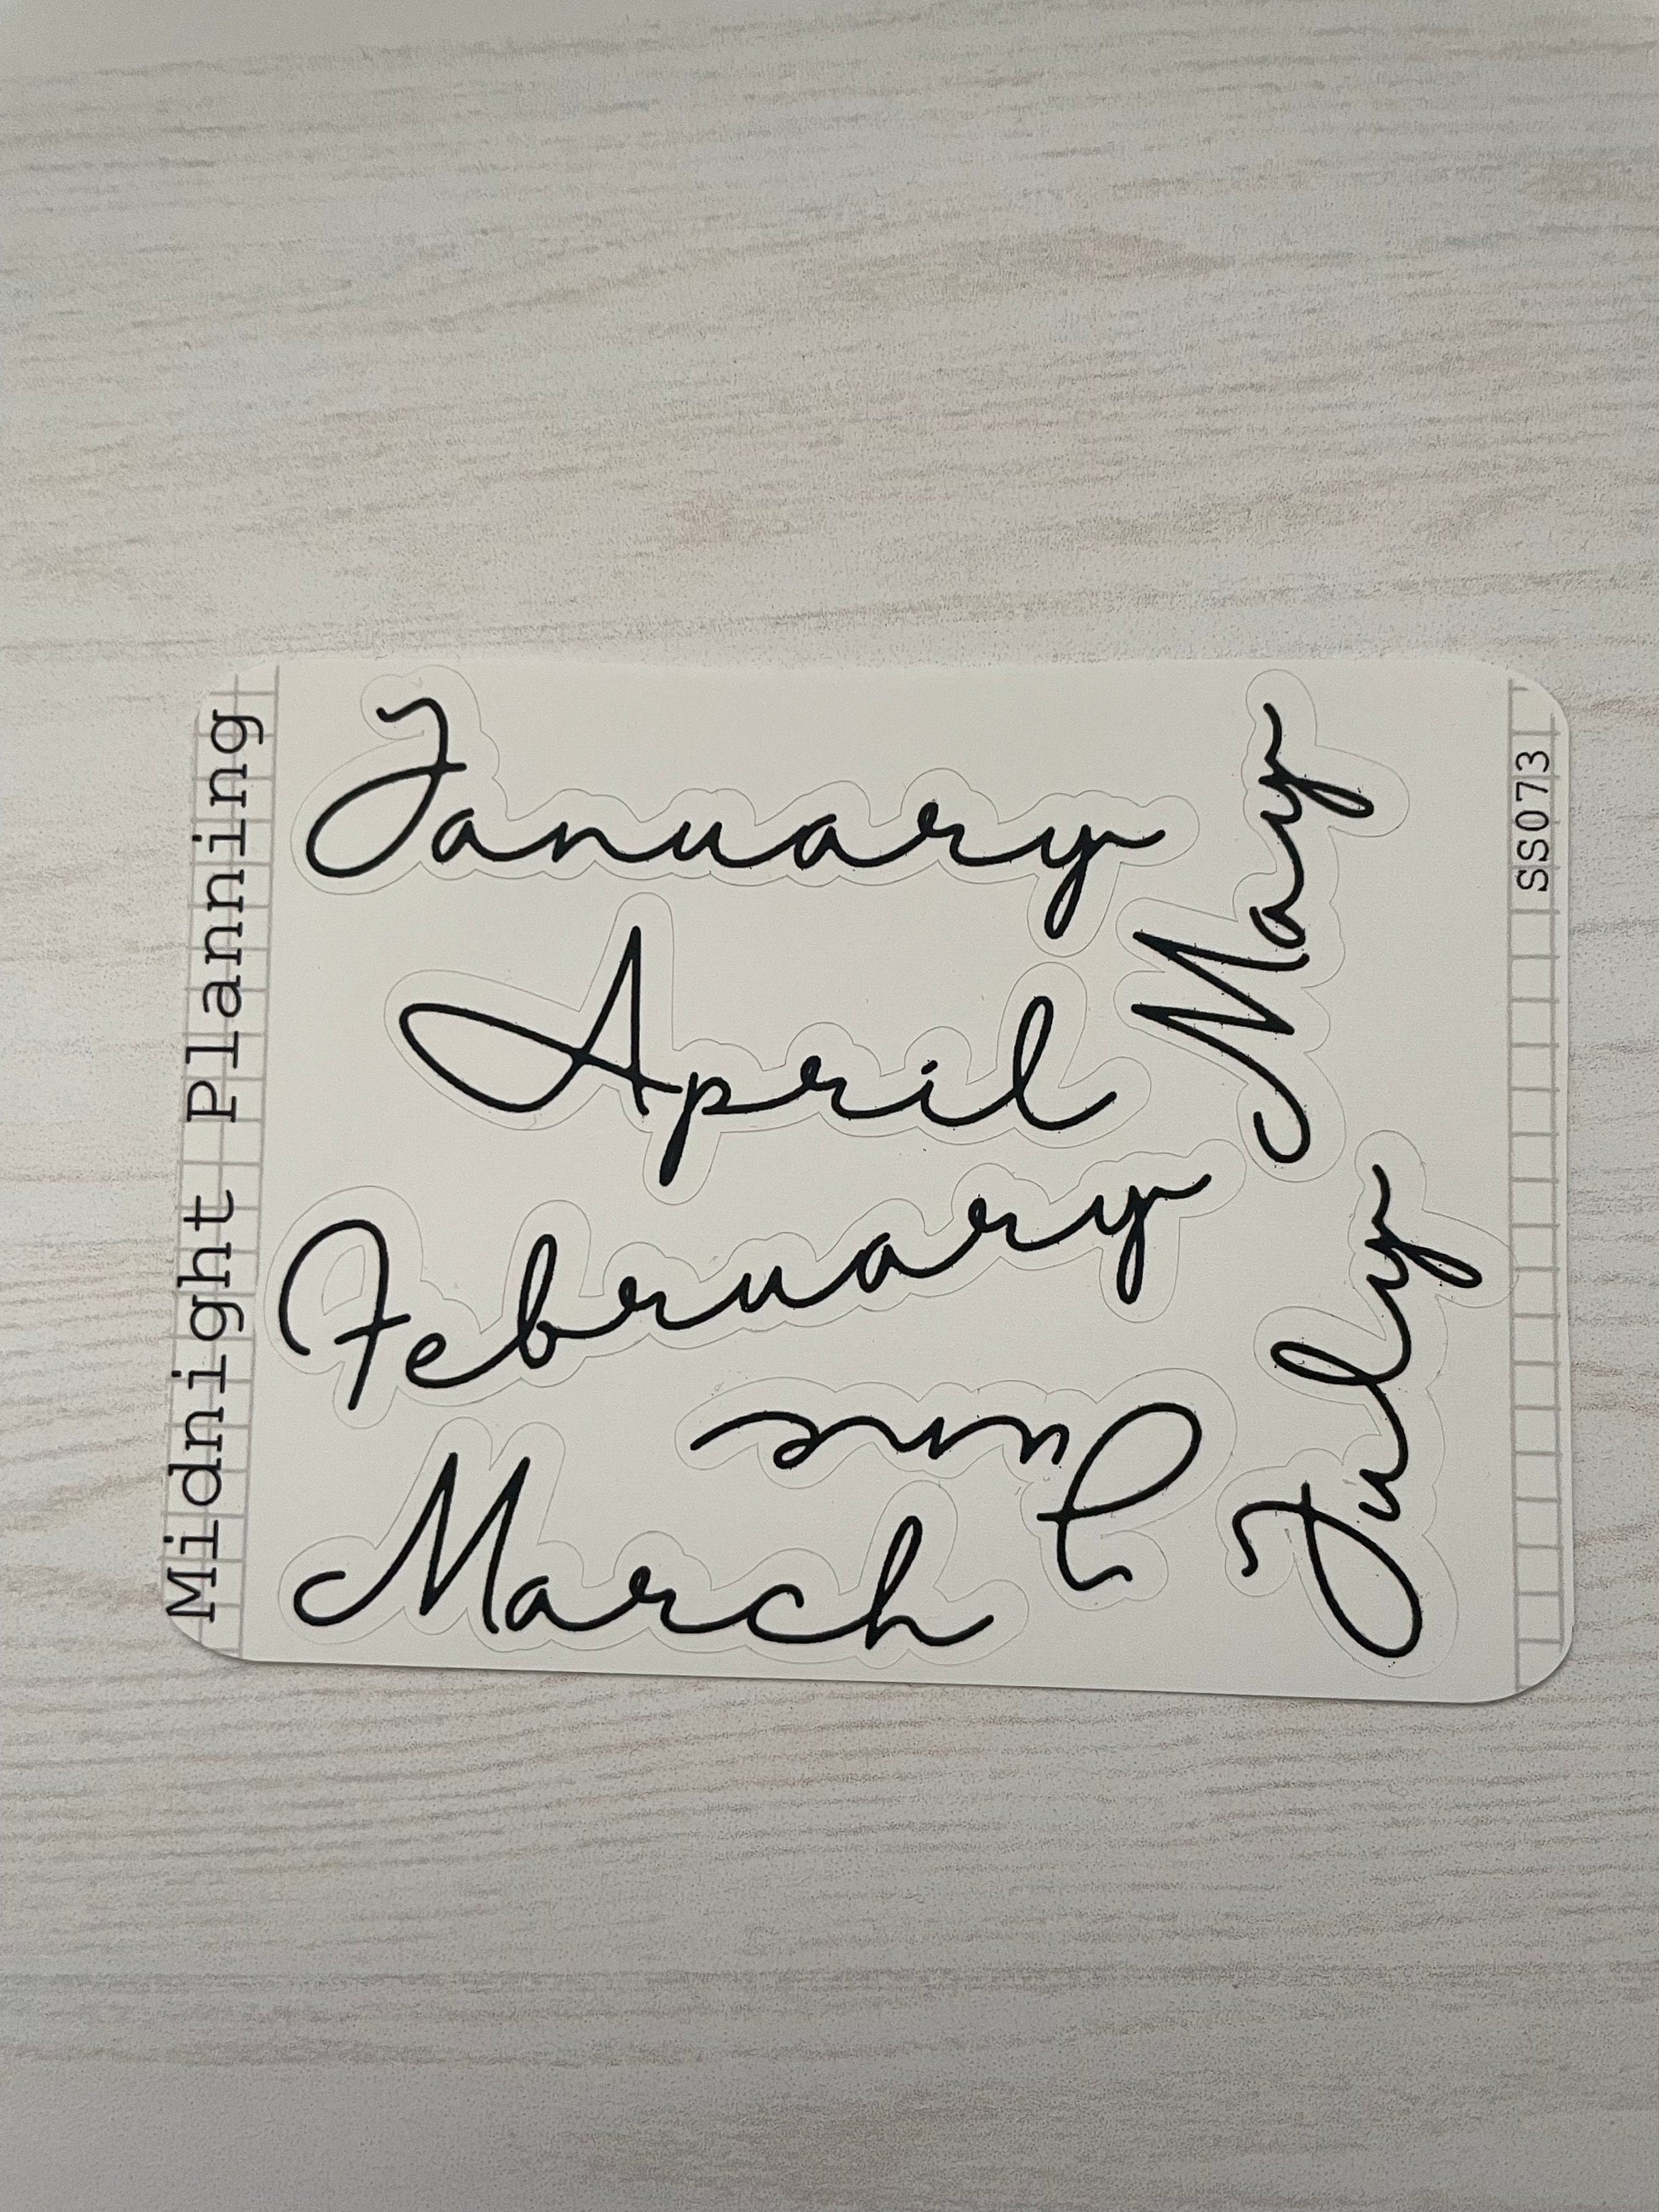 Midnight Planning
January
April
February
June
March
May
July
SS073